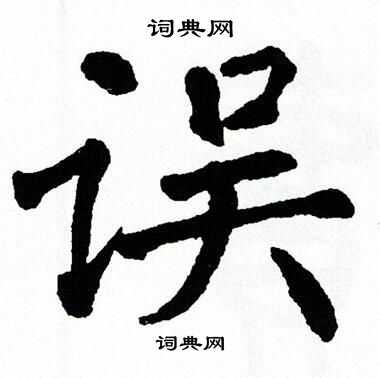 词典网
误
词典网